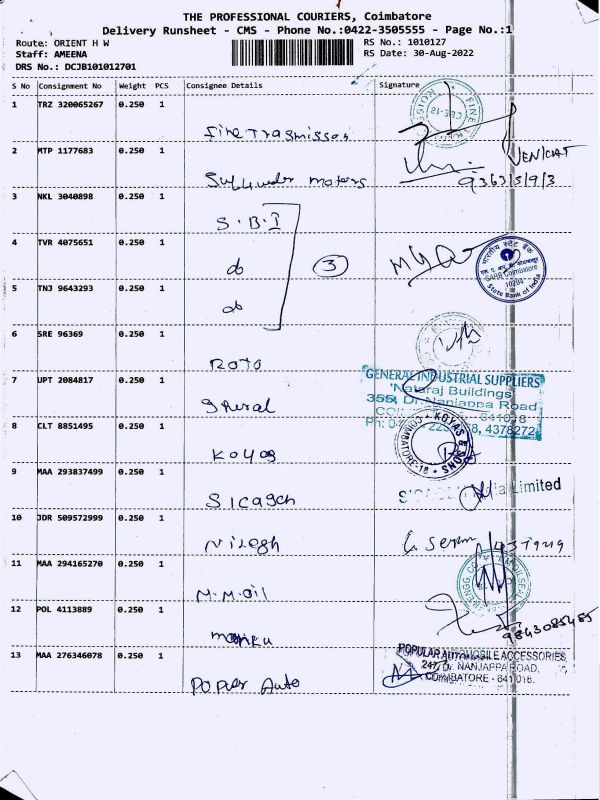 THE PROFESSIONAL COURIERS, Coimbatore
Delivery Runsheet - CMS - Phone No.:0422-3505555 - Page No.:1
Route: ORIENT H W
RS No.: 1010127
Staff: AMEENA
RS Date: 30-Aug-2022
DRS No.: DCJB101012701
S No Consignment No Weight PCS Consignee Details Signature
1 TRZ 320065267 0.250 1
Fine Trasmisson
FINE
CBE-18
2 MTP 1177683 0.250 1
motors
VENKAT
3 NKL 3040898 0.250 1
S.B.I
4 TVR 4075651 0.250 1
do
3
भारतीय स्टेट बैंक
SARB Coimbatore
10204
State Bank of India
5 TNJ 9643293 0.250 1
do
6 SRE 96369 0.250 1
Roto
7 UPT 2084817 0.250 1
GENERAL INDUSTRIAL SUPPLIERS
'Nataraj Buildings'
355, Dr. Nanjappa Road
641018
4378272
8 CLT 8851495 0.250 1
Koyas
KOYAS & SONS
COIMBATORE-18
9 MAA 293837499 0.250 1
Sicagen
India Limited
10 JDR 509572999 0.250 1
11 MAA 294165270 0.250 1
M.M.oil
12 POL 4113889 0.250 1
9843085485
13 MAA 276346078 0.250 1
Auto
POPULAR AUTOMOBILE ACCESSORIES
247, Dr. NANJAPPA ROAD,
COIMBATORE - 641 018.